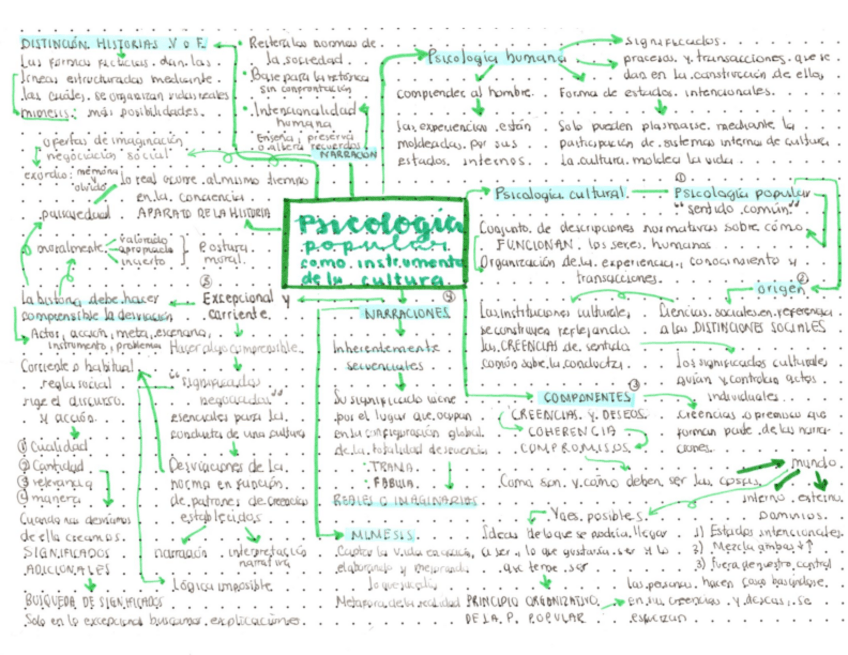 DISTINCIÓN HISTORIAS V o F.
Las formas ficticias dan las
líneas estructuradas mediante
las cuales se organizan vidas reales
mimesis: más posibilidades.
ofertas de imaginación
negociación social
exordio: memoria
y
olvido
lo real ocurre al mismo tiempo
en la conciencia
APARATO DE LA HISTORIA
moralmente
valorado
apropiado
incierto
Postura
moral.
La historia debe hacer
comprensible la desviación
Actor, acción, meta, escenario,
instrumento, problema
Corriente o habitual
regla social
rige el discurso
y acción
① Cualidad
② Cantidad
③ relevancia
④ manera
Cuando nos
de ella creamos
SIGNIFICADOS
ADICIONALES
BÚSQUEDA DE SIGNIFICADOS
Solo en lo excepcional buscamos explicaciones.
• Reitera las normas de
la sociedad.
• Base para la retórica
sin confrontación
• Intencionalidad
humana
Enseña, preserva
o altera recuerdos
NARRACIÓN
Psicología
popular
como instrumento
de la cultura
⑤
Excepcional y
corriente.
Hacer algo comprensible
"significados
negociados"
esenciales para la
conducta de una cultura
Desviaciones de la
norma en función
de patrones de creencias
establecidos
narración
interpretación
narrativa
Lógica imposible
④
NARRACIONES
Inherentemente
secuenciales
Su significado viene
por el lugar que ocupan
en la configuración global
de la totalidad de secuencia
• TRAMA
• FÁBULA
REALES O IMAGINARIOS
MÍMESIS
Captar la vida en acción,
elaborando y mejorando
lo que sucedía
Metáfora de la realidad
Psicología humana
significados.
procesos y transacciones que se
dan en la construcción de ellos
comprender al hombre.
Forma de estados intencionales.
Las experiencias están
moldeadas por sus
estados internos.
Solo pueden plasmarse mediante la
participación de sistemas internos de cultura
La cultura moldea la vida
Psicología cultural
①
Psicología popular
"sentido común"
Conjunto de descripciones normativas sobre cómo
FUNCIONAN los seres humanos
Organización de la experiencia, conocimiento y
transacciones.
②
origen
Las instituciones culturales
se construyen reflejando
las CREENCIAS de sentido
común sobre la conducta.
Ciencias sociales en referencia
a las DISTINCIONES SOCIALES
los significados culturales
guían y controlan actos
individuales.
③
COMPONENTES
CREENCIAS Y DESEOS
COHERENCIA
COMPROMISOS
Creencias o premisas que
forman parte de las narra-
ciones.
Como son y cómo deben ser las cosas
mundo
interno externo
DOMINIOS.
Yoes posibles
Ideas de lo que se podría llegar
a ser, lo que gustaría ser y lo
que teme ser
1) Estados intencionales
2) Mezcla ambas
3) Fuera de nuestro control
PRINCIPIO ORGANIZATIVO
DE LA P. POPULAR
las personas hacen cosas basándose
en sus creencias y deseos, se
esfuerzan